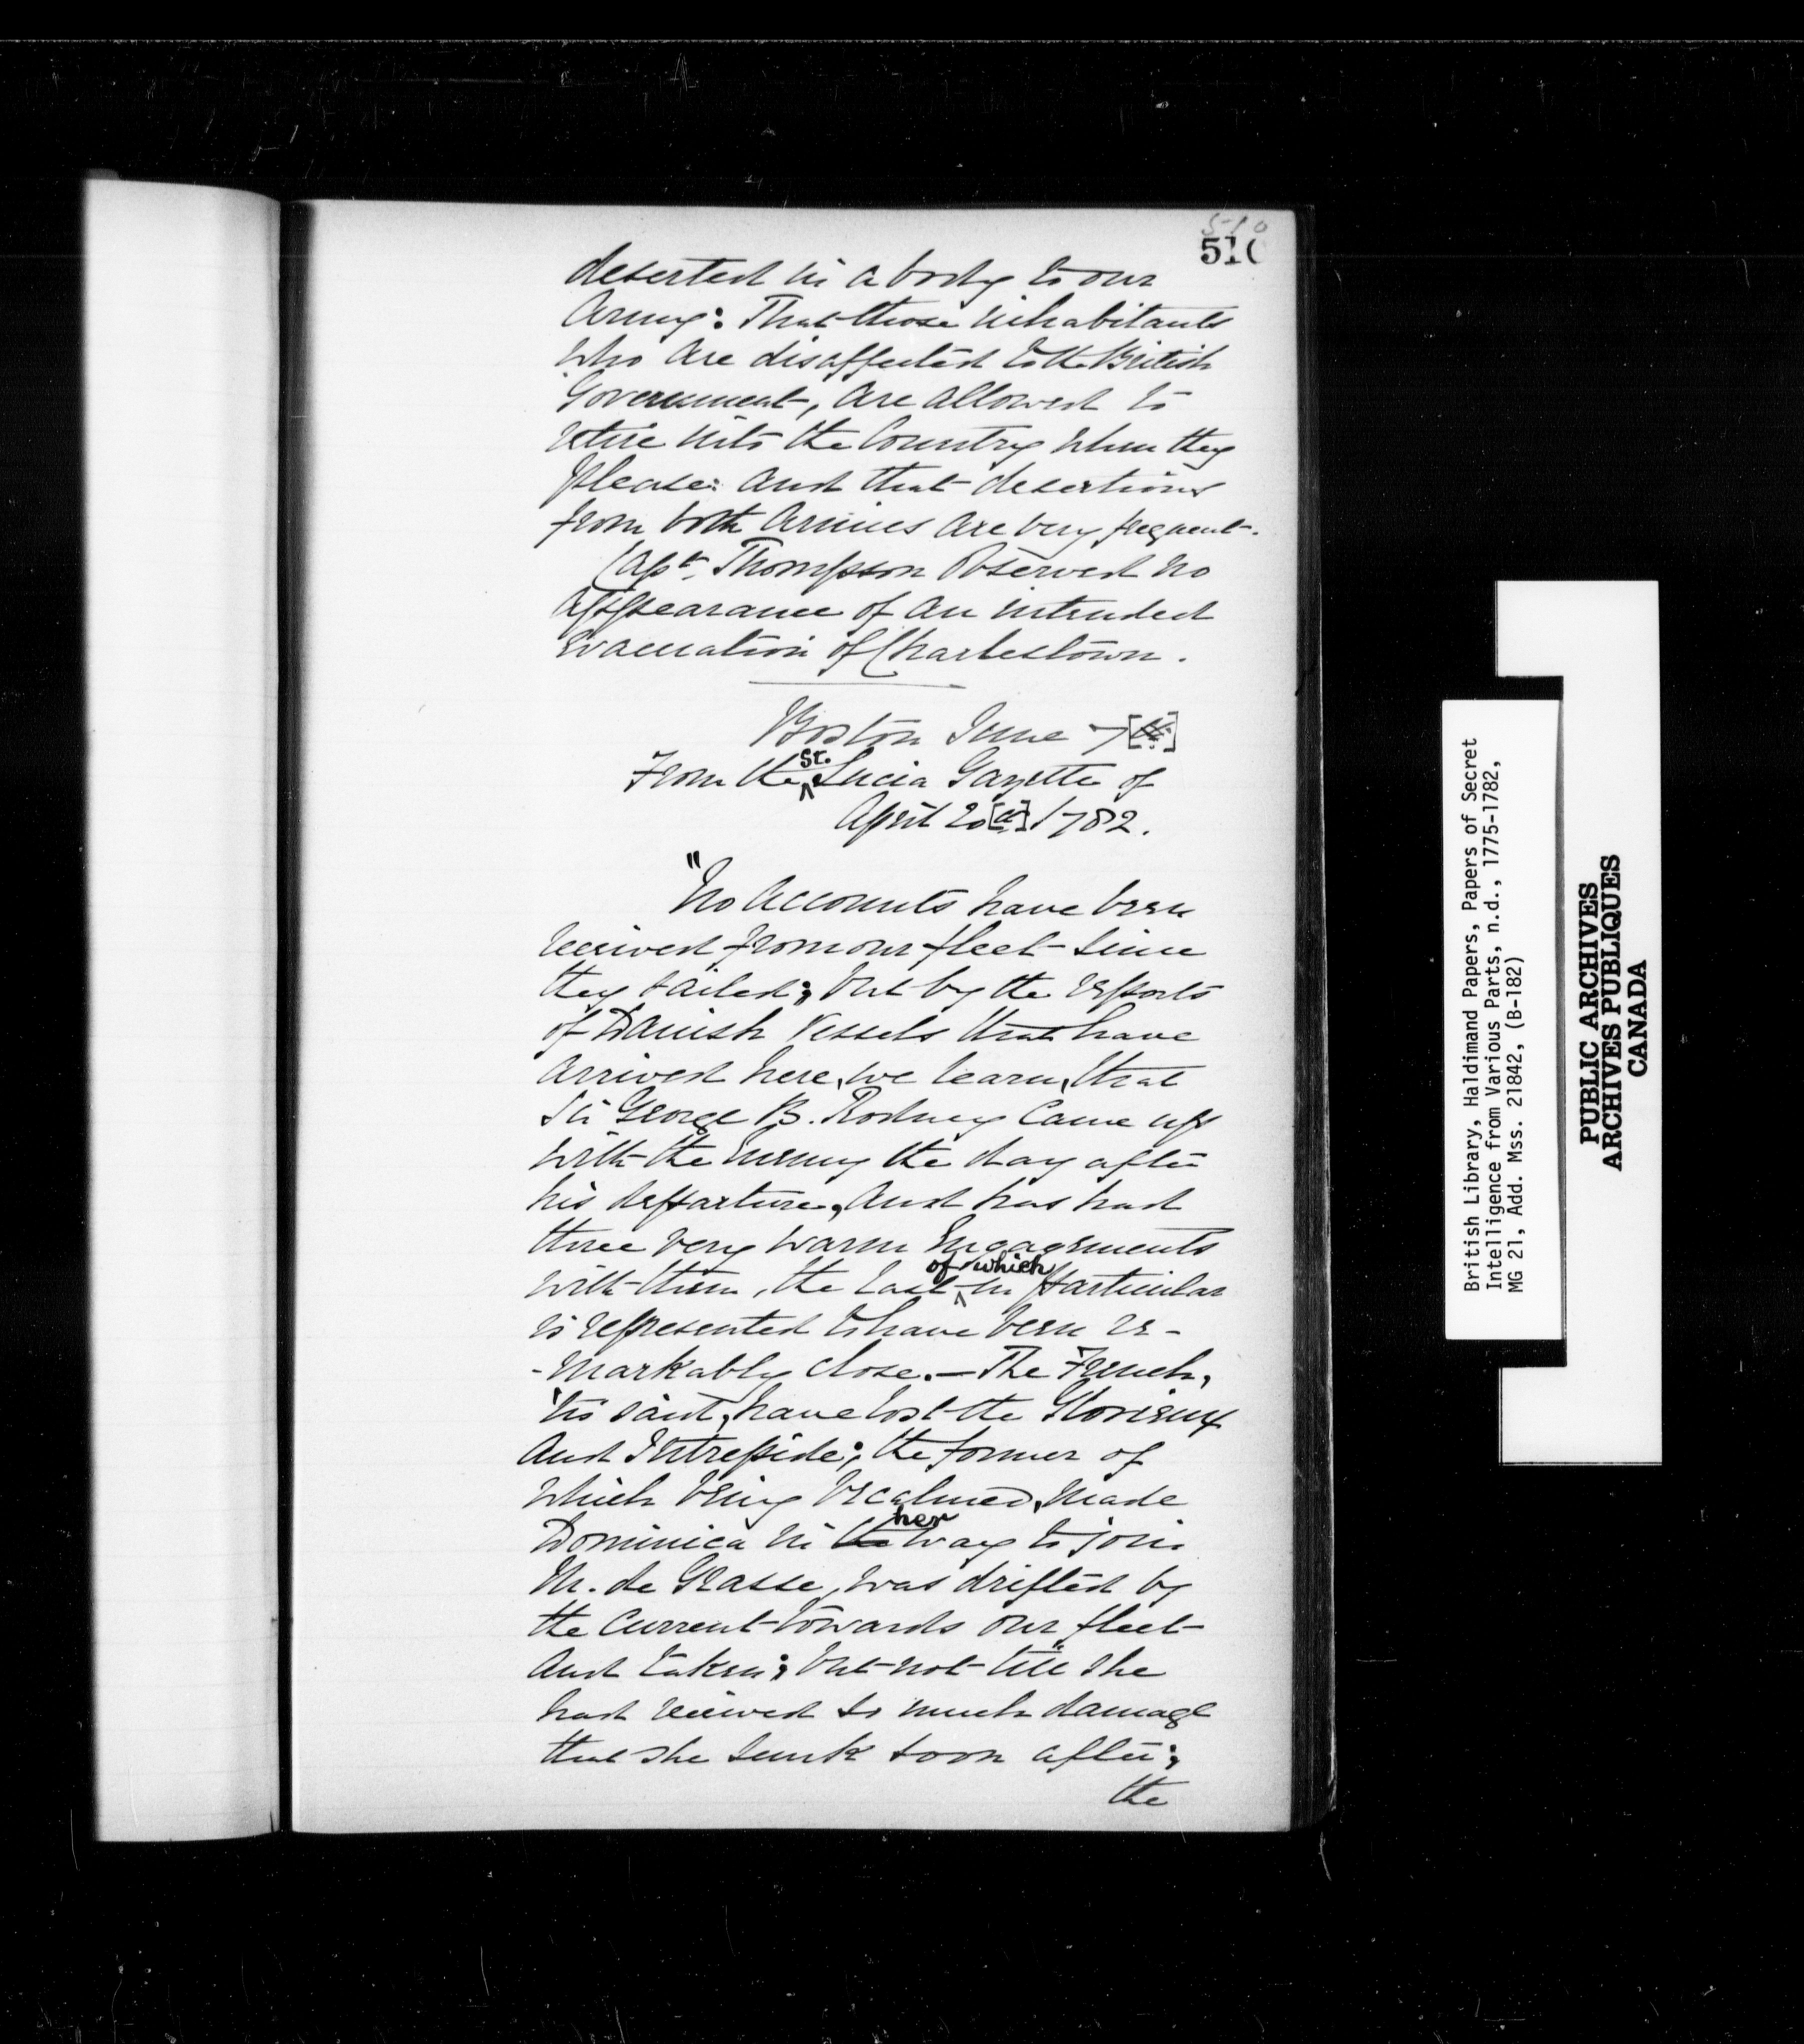 510
510
deserted in a body to our
Army: That those inhabitants
who are disaffected to the British
Government, are allowed to
retire into the Country when they
please: and that desertions
from both Armies are very frequent.
Capt. Thompson observed no
appearance of an intended
evacuation of Charlestown.
Boston June 7
From the St. Lucia Gazette of
April 20 1782.
"No accounts have been
received from our fleet since
they sailed; but by the reports
of Danish Vessels that have
arrived here, we learn, that
Sir George B. Rodney came up
with the Enemy the day after
his departure, and has had
three very warm Engagements
with them, the last of which in particular
is represented to have been re-
-markably close. — The French,
'tis said, have lost the Glorieux
and Intrepide; the former of
which being becalmed, made
Dominica in the her way to join
M. de Grasse, was drifted by
the current towards our fleet
and taken; but not till she
had received so much damage
that she sunk soon after;
the
British Library, Haldimand Papers, Papers of Secret
Intelligence from Various Parts, n.d., 1775-1782,
MG 21, Add. Mss. 21842, (B-182)
PUBLIC ARCHIVES
ARCHIVES PUBLIQUES
CANADA